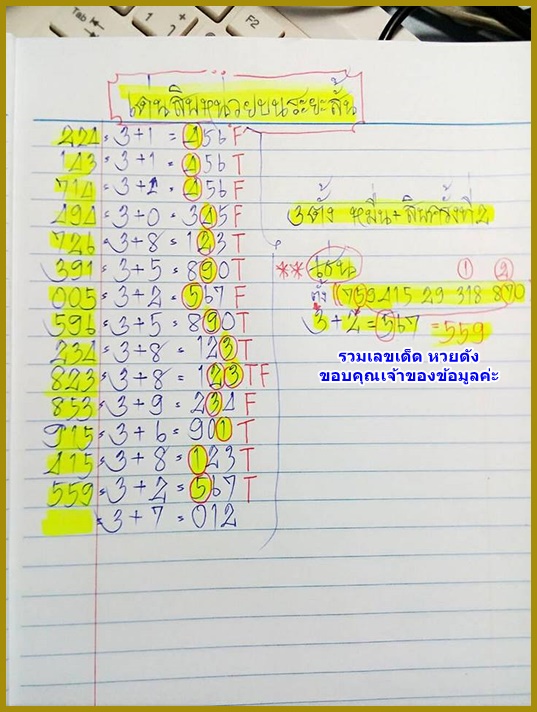 Tab
F2
เด่นสิบหน่วยบนระยะสั้น
224 = 3+1 = 456 F
143 = 3+1 = 456 T
714 = 3+1 = 456 F
494 = 3+0 = 345 F
726 = 3+8 = 123 T
391 = 3+5 = 890 T
005 = 3+2 = 567 F
596 = 3+5 = 890 T
234 = 3+8 = 123 T
823 = 3+8 = 123 TF
853 = 3+9 = 234 F
915 = 3+6 = 901 T
415 = 3+8 = 123 T
559 = 3+2 = 567 T
= 3+7 = 012
3 ตั้ง หมื่น+สิบครั้งที่2
** เช่น
1 2
ตั้ง (759 415 29 318 870)
3+2 = 567 = 559
รวมเลขเด็ด หวยดัง
ขอบคุณเจ้าของข้อมูลค่ะ